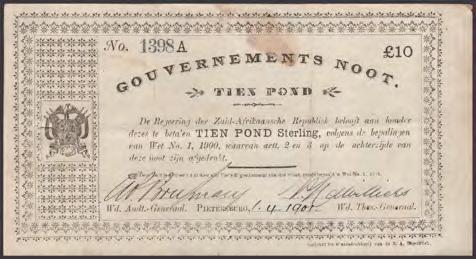 No. 1398A £10
GOUVERNEMENTS NOOT.
TIEN POND
De Regering der Zuid-Afrikaansche Republiek belooft aan houder
dezes te betalen TIEN POND Sterling, volgens de bepalingen
van Wet No. 1, 1900, waarvan artt. 2 en 3 op de achterzijde van
deze noot zijn afgedrukt.
Wd. Audt.-Generaal. PIETERSBURG, 1.4.1901 Wd. Thes.-Generaal.